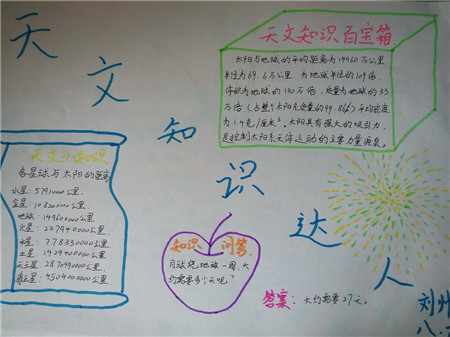 天文知识达人
天文知识百宝箱
太阳与地球的平均距离为14960万公里
半径为69.6万公里,为地球半径的109倍,
体积为地球的130万倍,质量为地球的33
万倍(占整个太阳系质量的99.86%)平均密度
为1.4克/厘米³。太阳具有强大的吸引力,
是控制太阳系天体运动的主要力量源泉。
天文小知识
各星球与太阳的距离
水星: 57910000公里.
金星: 108200000公里.
地球: 149600000公里
火星: 227940000公里.
木星: 778330000公里
土星: 1429400000公里.
天王星: 2870990000公里.
海王星: 4504000000公里
知识问答
月球绕地球一周,大
约需要多少天呢?
答案: 大约需要27天。
刘州
八.